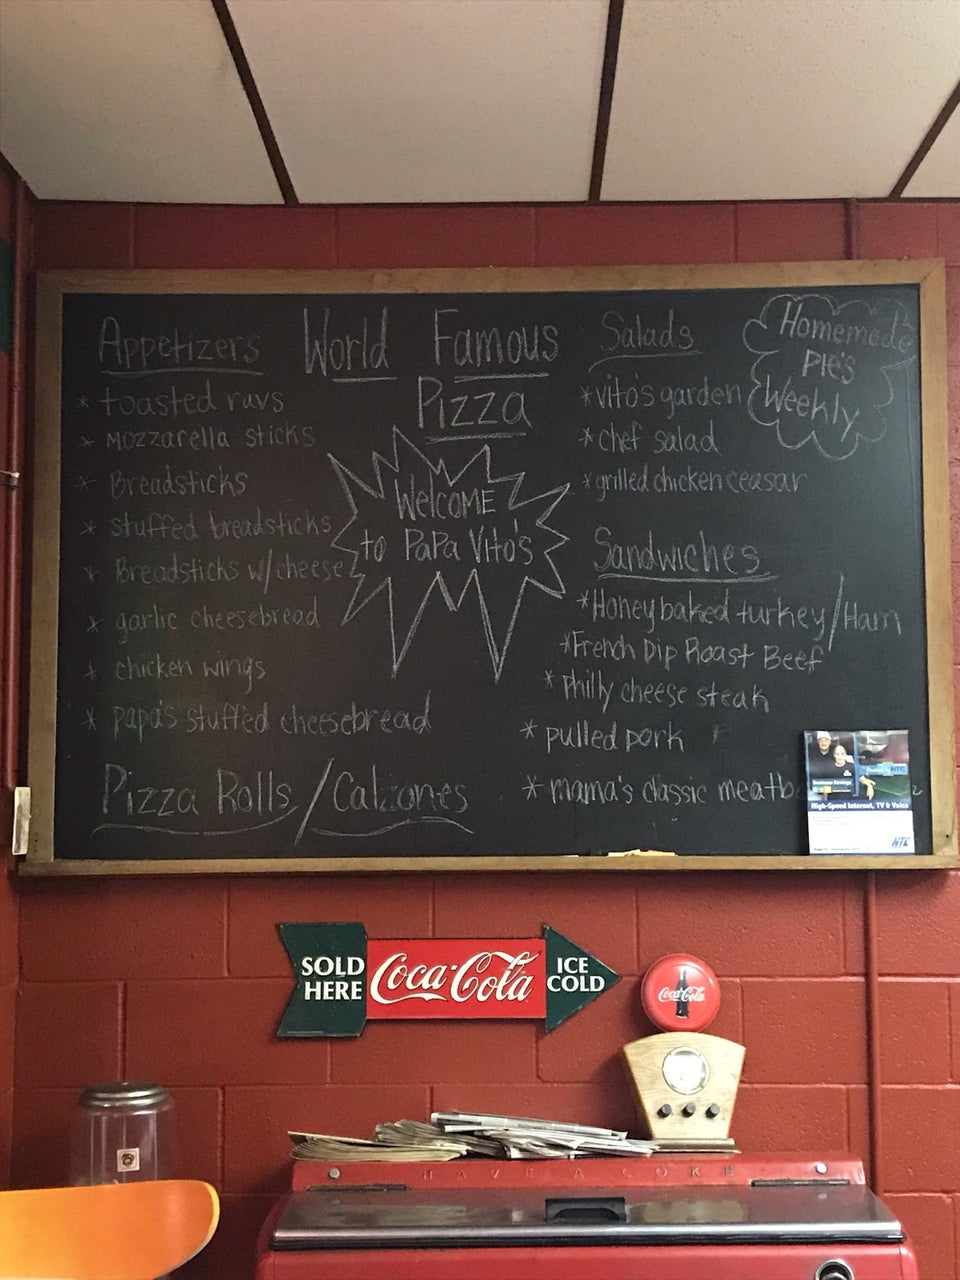 Appetizers
* toasted ravs
* mozzarella sticks
* Breadsticks
* stuffed breadsticks
* Breadsticks w/cheese
* garlic cheesebread
* chicken wings
* papa's stuffed cheesebread
Pizza Rolls/Calzones
World Famous
Pizza
Welcome
to PaPa Vito's
Salads
* vito's garden
* chef salad
* grilled chicken ceasar
Homemade
Pie's
Weekly
Sandwiches
* Honeybaked turkey/Ham
* French Dip Roast Beef
* philly cheese steak
* pulled pork
* mama's classic meatb
High-Speed Internet, TV & Voice
NTC
SOLD
HERE
Coca-Cola
ICE
COLD
Coca-Cola
HAVE A COKE